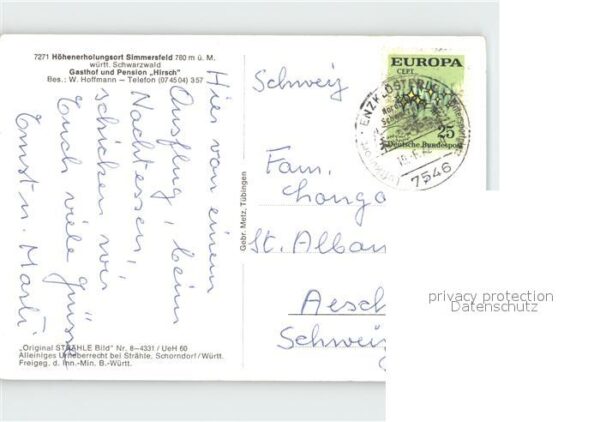 7271 Höhenerholungsort Simmersfeld 760 m ü. M.
württ. Schwarzwald
Gasthof und Pension „Hirsch"
Bes.: W. Hoffmann – Telefon (0 74504) 357
Hier von einem
Ausflug, beim
Nachtessen,
schicken wir
Euch viele Grüsse
Ernst u. Marti
„Original STRÄHLE Bild" Nr. 8–4331 / UeH 60
Alleiniges Urheberrecht bei Strähle, Schorndorf / Württ.
Freigeg. d. Inn.-Min. B.-Württ.
Gebr. Metz, Tübingen
EUROPA
CEPT
25
Deutsche Bundespost
ENZKLÖSTERLE
7546
Schweiz
Fam.
Longa
St. Alban
Aesch
Schweiz
privacy protection
Datenschutz